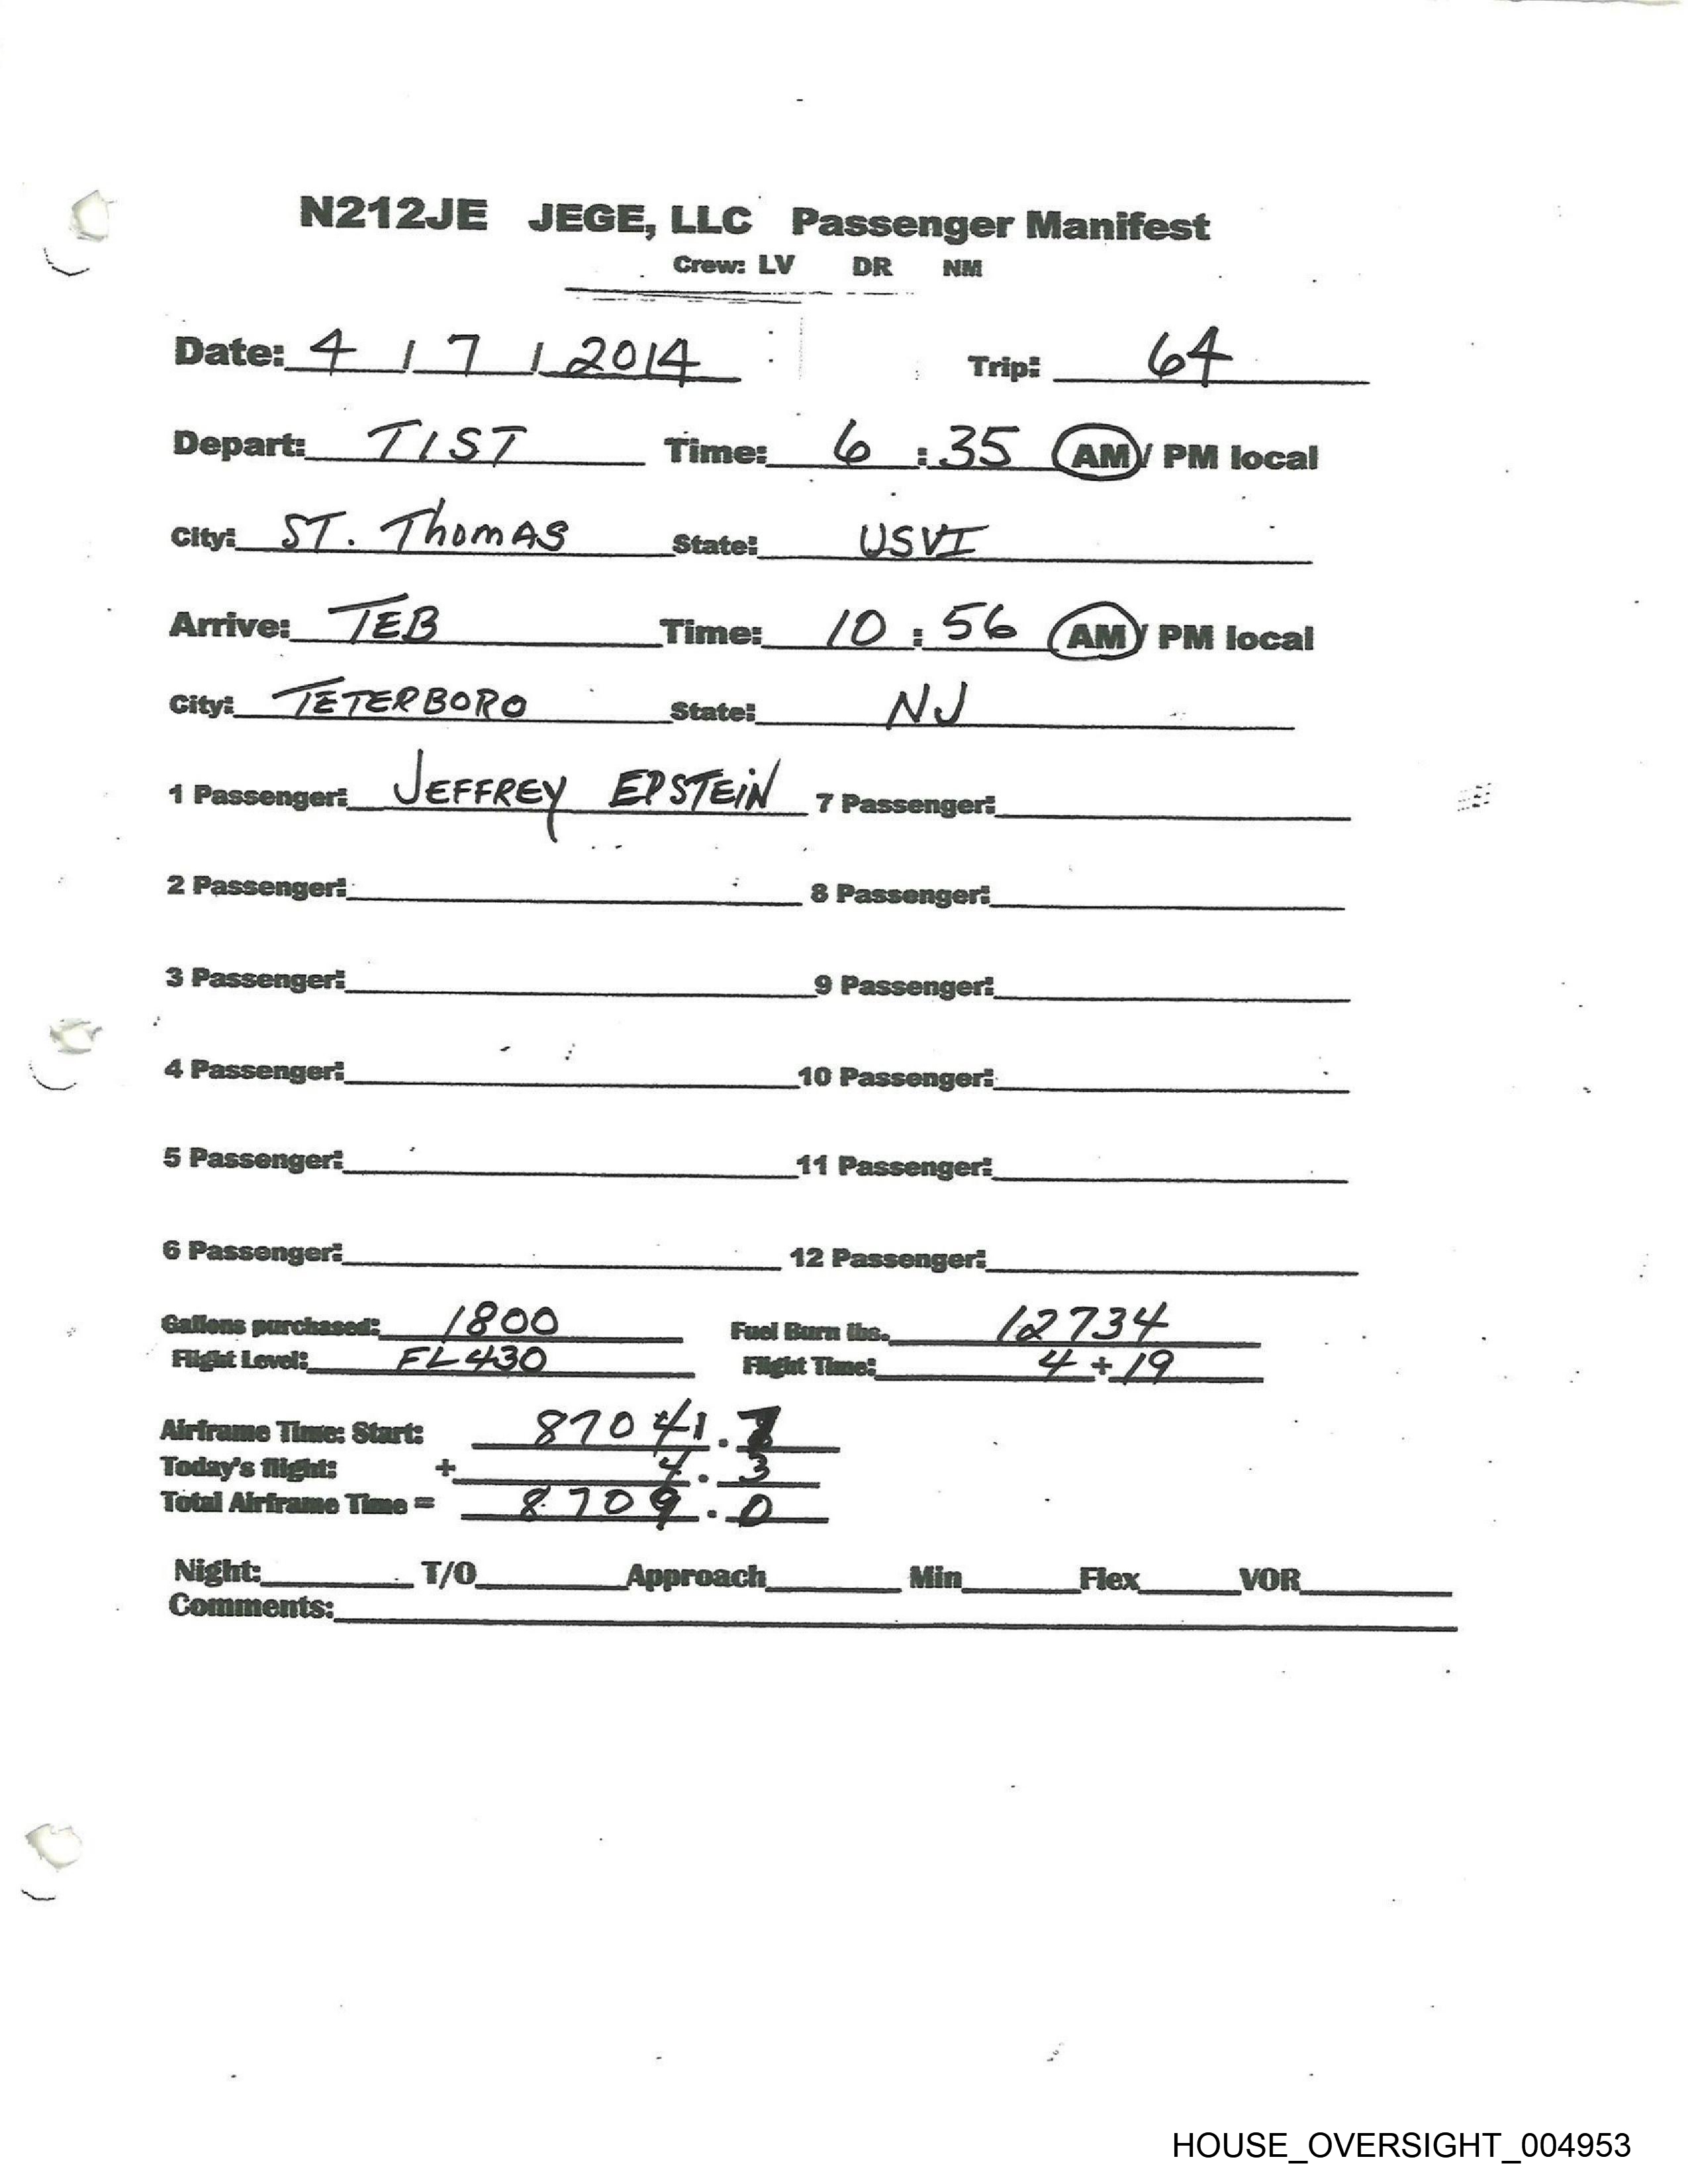 N212JE JEGE, LLC Passenger Manifest
Crew: LV DR NM
Date: 4 / 7 / 2014 Trip: 64
Depart: TIST Time: 6 : 35 AM / PM local
City: ST. THOMAS State: USVI
Arrive: TEB Time: 10 : 56 AM / PM local
City: TETERBORO State: NJ
1 Passenger: JEFFREY EPSTEIN 7 Passenger:
2 Passenger: 8 Passenger:
3 Passenger: 9 Passenger:
4 Passenger: 10 Passenger:
5 Passenger: 11 Passenger:
6 Passenger: 12 Passenger:
Gallons purchased: 1800 Fuel Burn lbs. 12734
Flight Level: FL430 Flight Time: 4 + 19
Airframe Time: Start:
Today's flight: + 4 . 3
Total Airframe Time = 8709 . 0
Night: T/O Approach Min Flex VOR
Comments:
HOUSE_OVERSIGHT_004953